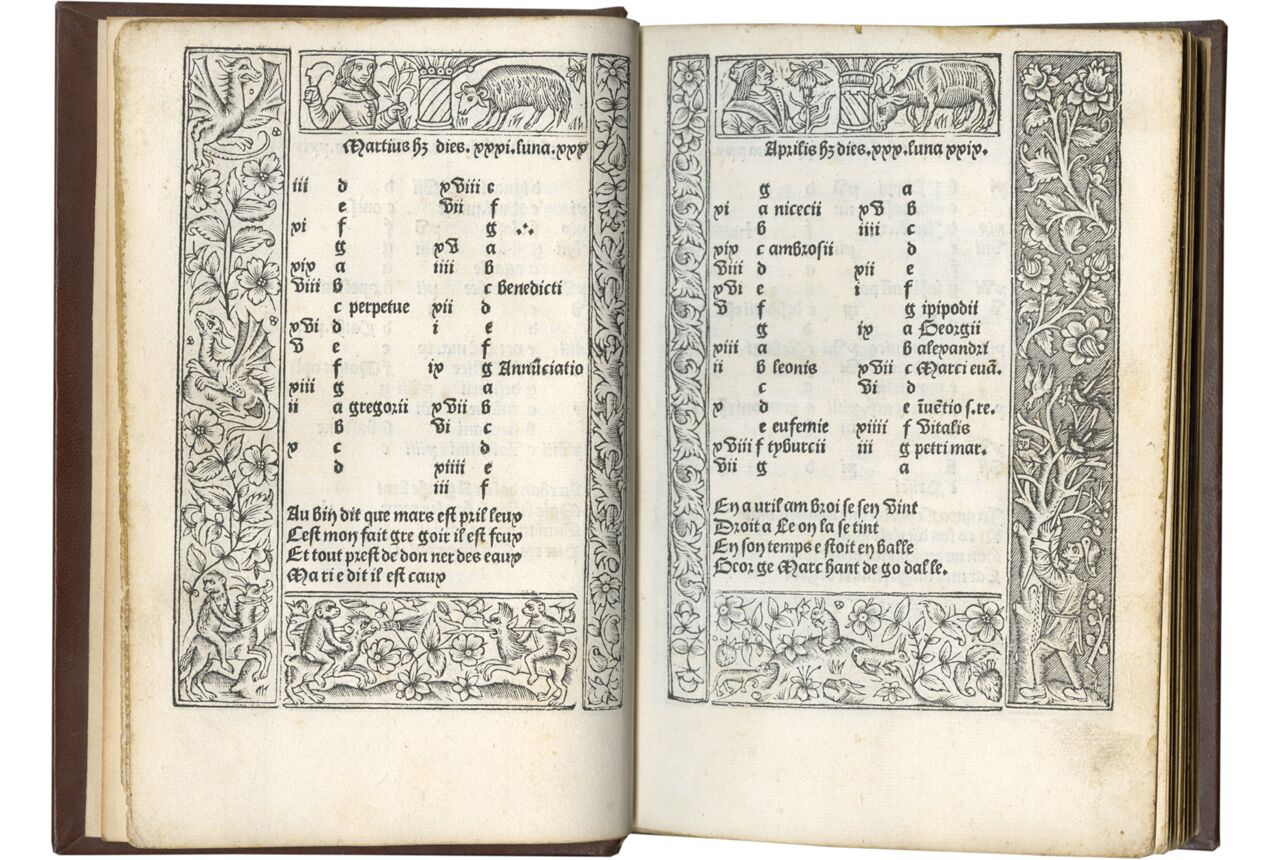 Martius hꝫ dies.xxxi.luna.xxx
iii d xviii e
e vii f
xi f g ∴
g xv a
xix a iiii b
viii b c Benedicti
c perpetue xii d
xvi d i e
v e f
f ix g Annūciatio
xiii g a
ii a gregorii xvii b
b vi c
x c d
d xiiii e
iii f
Au bin dit que mars est pril leux
Cest mon fait gre goir il est feux
Et tout prest de don ner des eaux
Ma ri e dit il est caux
Aprilis hꝫ dies.xxx.luna xxix.
g a
xi a nicecii xv b
b iiii c
xix c ambrosii d
viii d xii e
xvi e i f
v f g ipipodii
g ix a Georgii
xiii a b alexandri
ii b leonis xvii c Marci euā.
c vi d
x d e īuētio s.re.
e eufemie xiiii f vitalis
xviii f tyburcii iii g petri mar.
vii g a
En a uril am broi se sen vint
Droit a Le on la se tint
En son temps e stoit en balle
Geor ge Marc hant de go dalle.